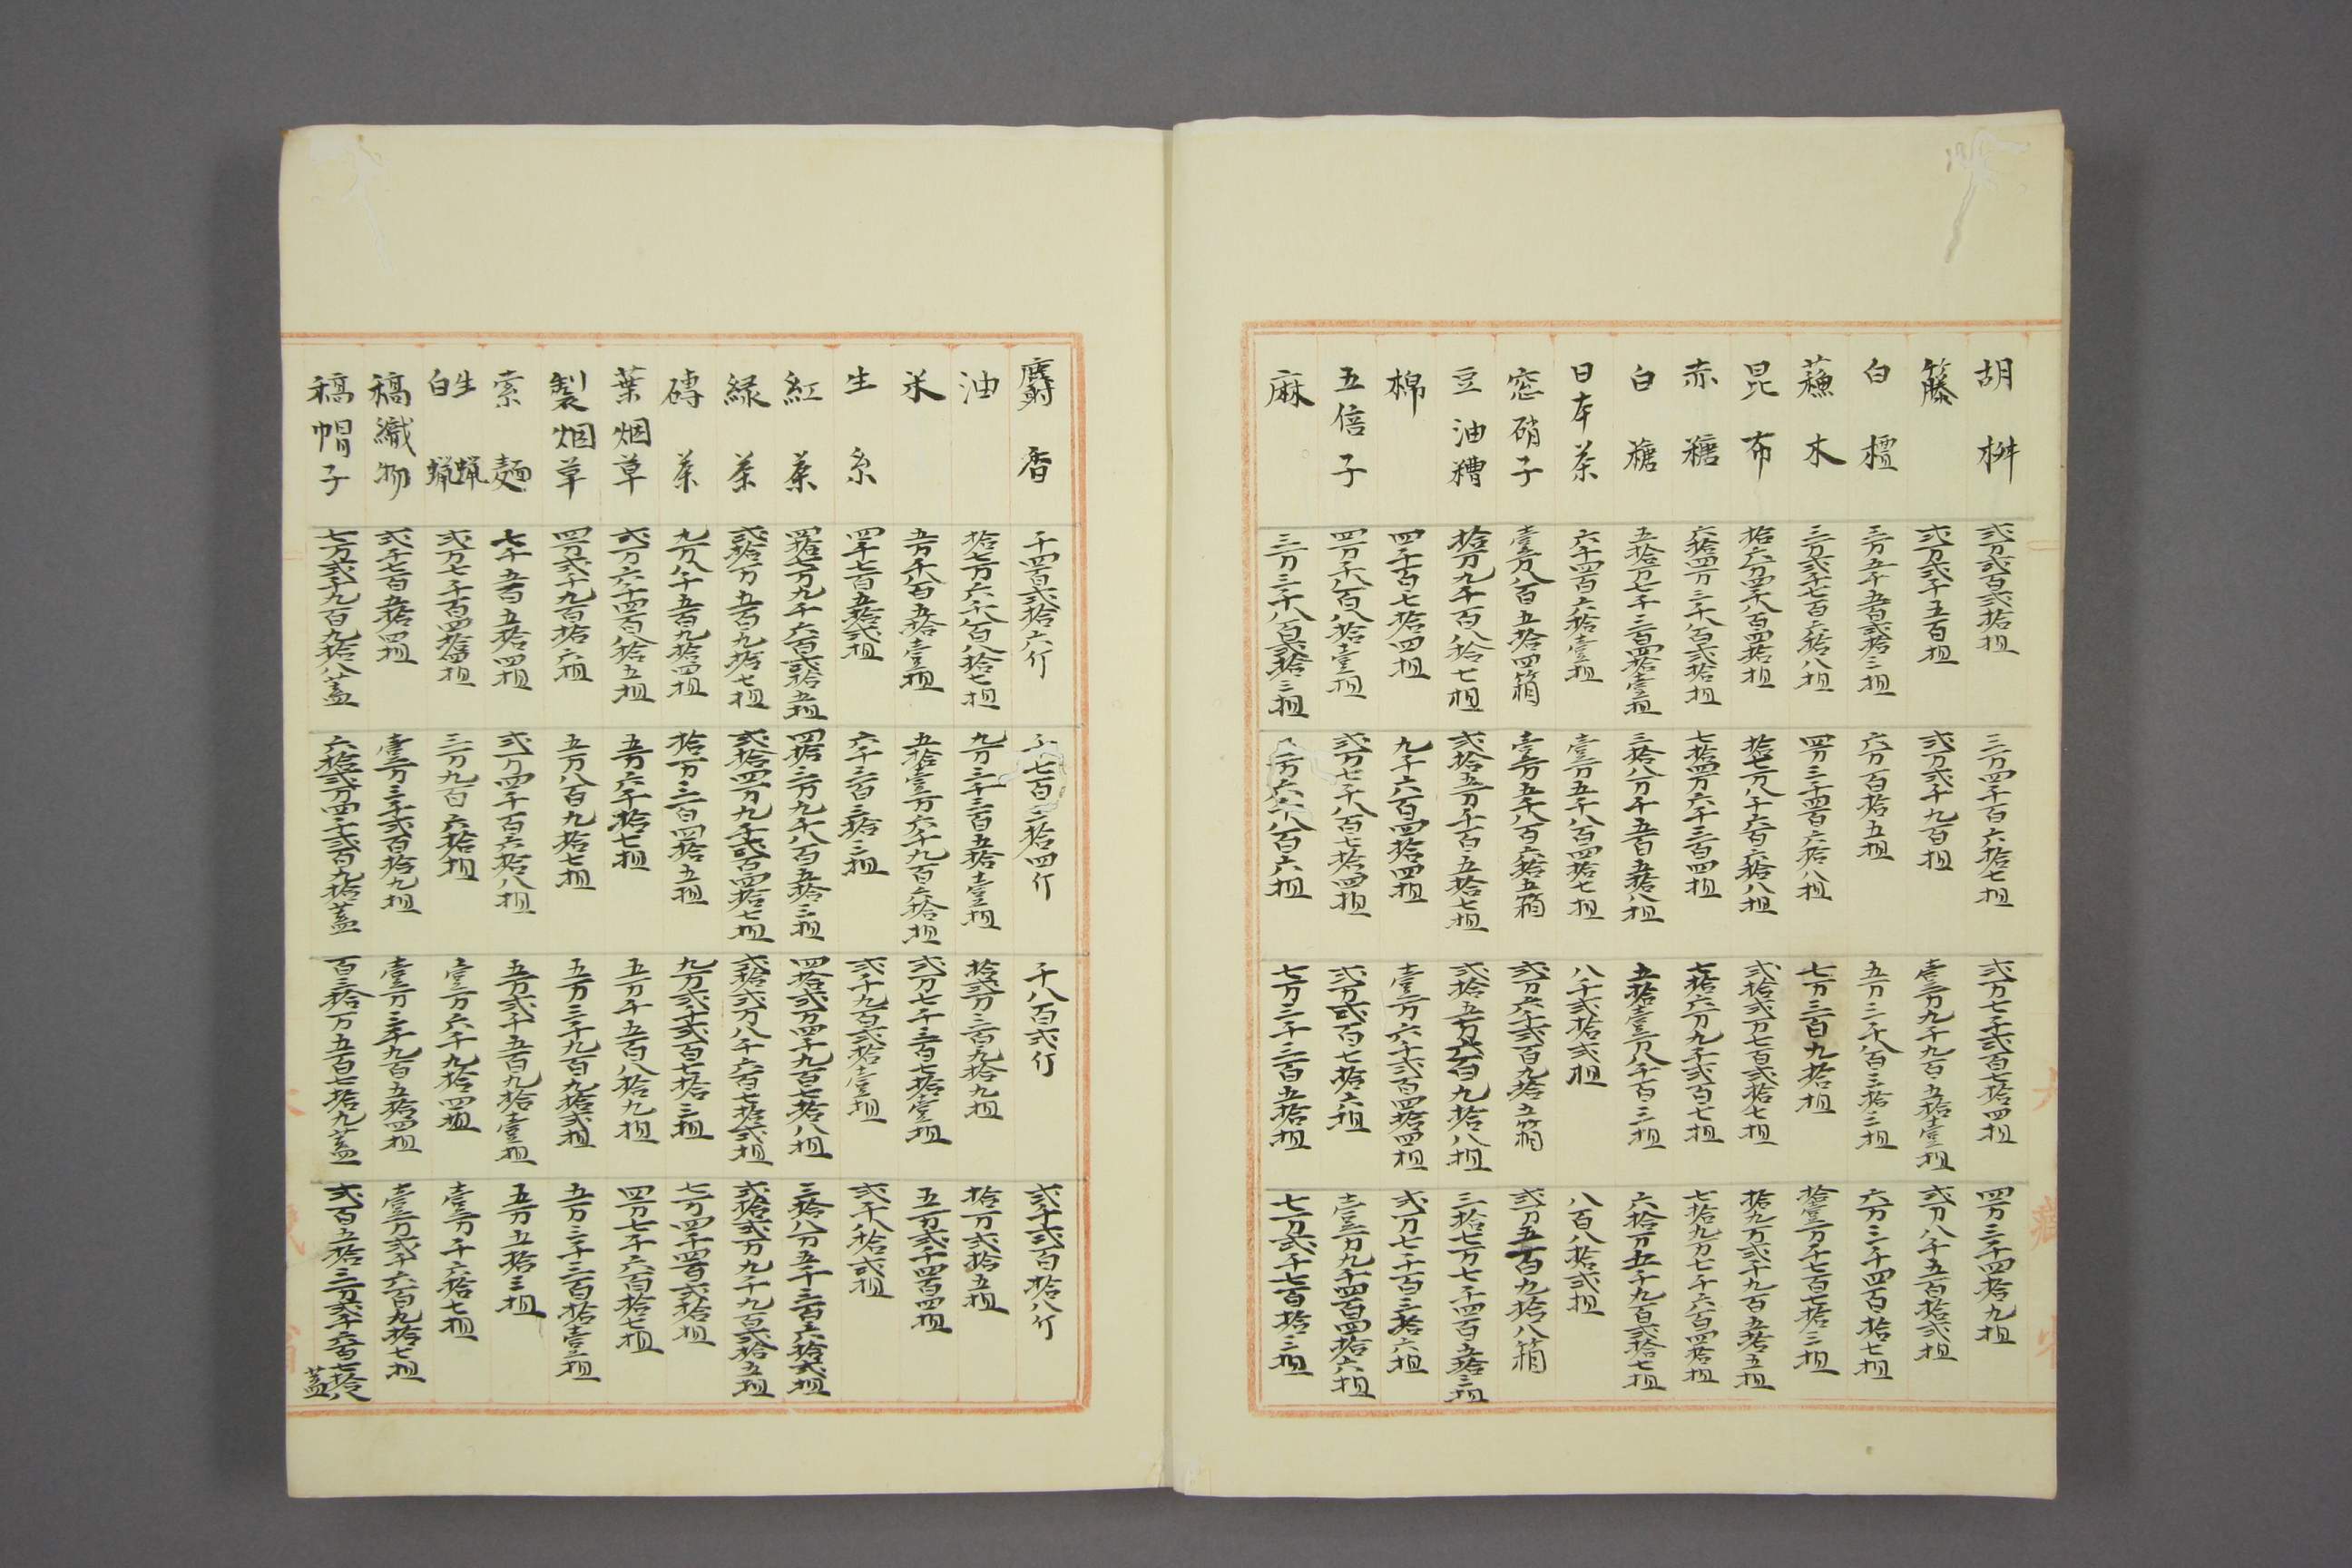 胡桝 弐万弐百弐拾担 三万四千百六拾七担 弐万七千弐百七拾四担 四万三千四拾九担
籐 弐万弐千五百担 弐万弐千九百担 壹万九千九百五拾壹担 弐万八千五百拾弐担
白檀 三万五千五百弐拾三担 六万百拾五担 五万二千八百三拾二担 六万三千四百拾七担
蘓木 三万弐千七百六拾八担 四万三千四百六拾八担 七万三百九拾担 拾壹万千七百七拾二担
昆布 拾六万四千八百四拾担 拾七万八千六百六拾八担 弐拾弐万七百弐拾七担 拾九万弐千九百五拾五担
赤糖 六拾四万三千八百弐拾担 七拾四万六千三百四担 七拾六万九千弐百七担 七拾九万七千六百四拾担
白糖 五拾万七千三百四拾壹担 三拾八万千五百五拾八担 五拾壹万八千百三担 六拾万五千九百弐拾七担
日本茶 六千四百六拾壹担 壹万五千八百四拾七担 八千弐拾弐担 八百八拾弐担
窓硝子 壹万八百五拾四箱 壹万五千八百六拾五箱 弐万六千弐百九拾五箱 弐万五百九拾八箱
豆油糟 拾万九千百八拾七担 弐拾五万千百五拾七担 弐拾五万六百九拾八担 三拾七万七千四百五拾三担
棉 四千百七拾四担 九千六百四拾四担 壹万六千弐百四拾四担 弐万七千百三拾六担
五倍子 四万千八百八拾壹担 弐万七千八百七拾四担 弐万弐百七拾六担 壹万九千四百四拾六担
麻 三万三千八百弐拾三担 万六千八百六担 七万二千三百五拾担 七万弐千七百拾二担
麝香 千四百弐拾六斤 七百 拾四斤 千八百弐斤 弐千弐百拾八斤
油 拾七万六千八百八拾七担 九万三千三百五拾壹担 拾弐万三百九拾九担 拾万弐拾五担
米 五万千八百五拾壹担 五拾壹万六千九百六拾担 弐万七千三百七拾壹担 五万弐千四百四担
生糸 四千七百五拾弐担 六千三百三拾三担 弐千九百弐拾壹担 弐千八拾弐担
紅茶 四拾七万九千六百弐拾五担 四拾三万九千八百五拾三担 四拾弐万四千九百七拾八担 三拾八万五千三百六拾弐担
緑茶 弐拾万五百九拾七担 弐拾四万九千弐百四拾七担 弐拾弐万八千六百七拾弐担 弐拾弐万九千九百弐拾五担
磚茶 九万八千五百九拾四担 拾万三百四拾五担 九万弐千弐百七拾三担 七万四千四百弐拾担
葉烟草 弐万六千四百八拾五担 五万六千拾七担 五万千五百八拾九担 四万七千六百拾七担
製烟草 四万弐千九百拾六担 五万八百九拾七担 五万三千九百九拾弐担 五万三千三百拾壹担
索麺 七千五百五拾四担 弐万四千百六拾八担 五万弐千五百九拾壹担 五万五拾三担
生蝋白蝋 弐万七千百四拾四担 三万九百六拾担 壹万六千九拾四担 壹万千六拾七担
稿織物 弐千七百五拾四担 壹万三千弐百拾九担 壹万三千九百五拾四担 壹万弐千六百九拾七担
稿帽子 七万弐千九百九拾八蓋 六拾弐万四千弐百九拾蓋 百三拾万五百七拾九蓋 弐百五拾三万弐千六百七拾八蓋